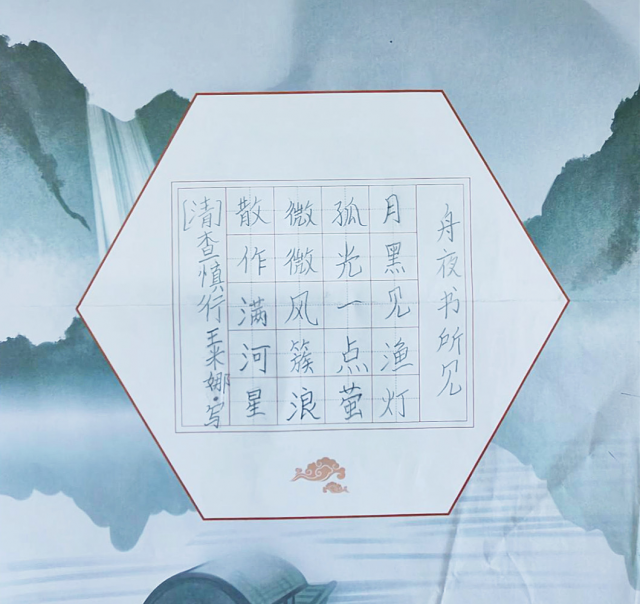 舟夜书所见
月黑见渔灯
孤光一点萤
微微风簇浪
散作满河星
[清]查慎行 王米娜·写